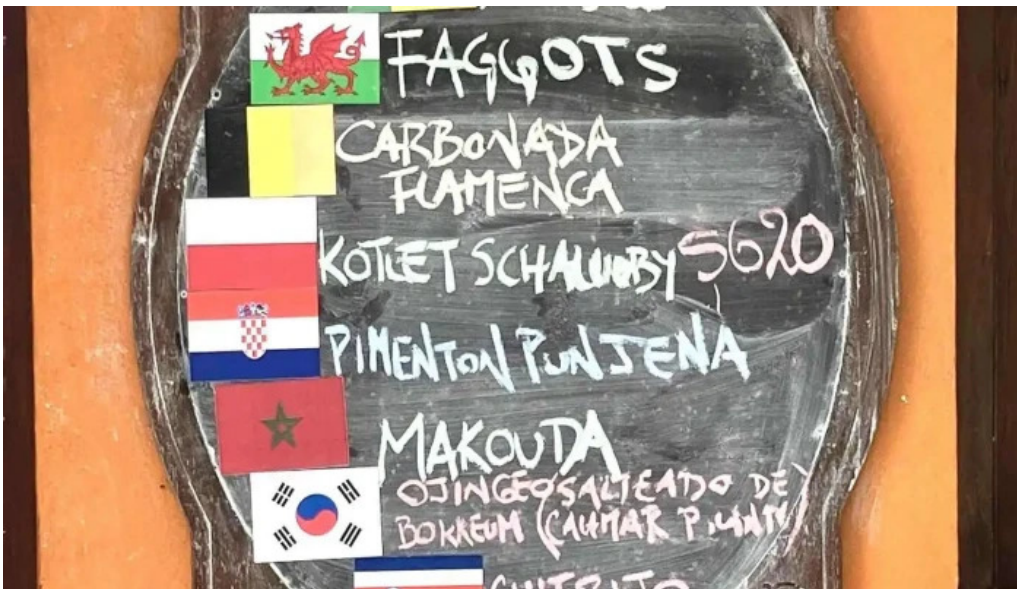 FAGGOTS
CARBONADA
FLAMENCA
KOTLET SCHALUOBY 5620
PIMENTON PUNJENA
MAKOUDA
OJINGEO SALTEADO DE
BOKKEUM (CALAMAR PICANTE)